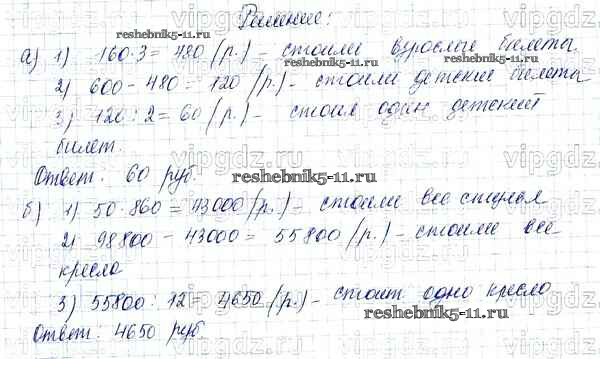 Решение:
а) 1) 160·3 = 480 (р.) – стоили взрослые билеты.
2) 600 – 480 = 120 (р.) – стоили детские билеты
3) 120 : 2 = 60 (р.) – стоил один детский
билет.
Ответ: 60 руб.
б) 1) 50·860 = 43000 (р.) – стоили все стулья
2) 98800 – 43000 = 55800 (р.) – стоили все
кресла
3) 55800 : 12 = 4650 (р.) – стоит одно кресло
Ответ: 4650 руб.
reshebnik5-11.ru
reshebnik5-11.ru
reshebnik5-11.ru
vipgdz.ru